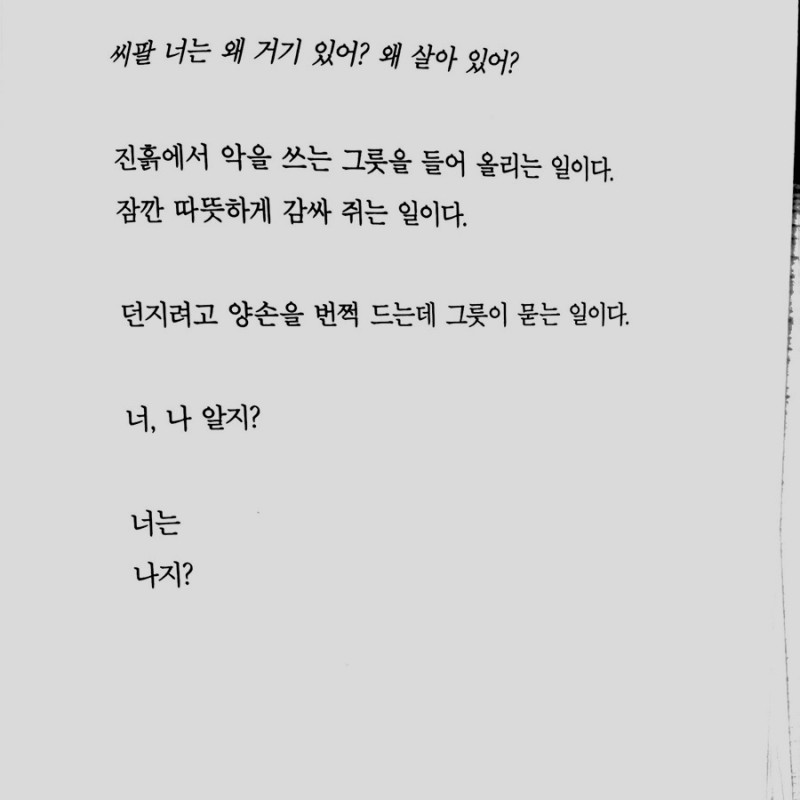 씨팔 너는 왜 거기 있어? 왜 살아 있어?
진흙에서 악을 쓰는 그릇을 들어 올리는 일이다.
잠깐 따뜻하게 감싸 쥐는 일이다.
던지려고 양손을 번쩍 드는데 그릇이 묻는 일이다.
너, 나 알지?
너는
나지?